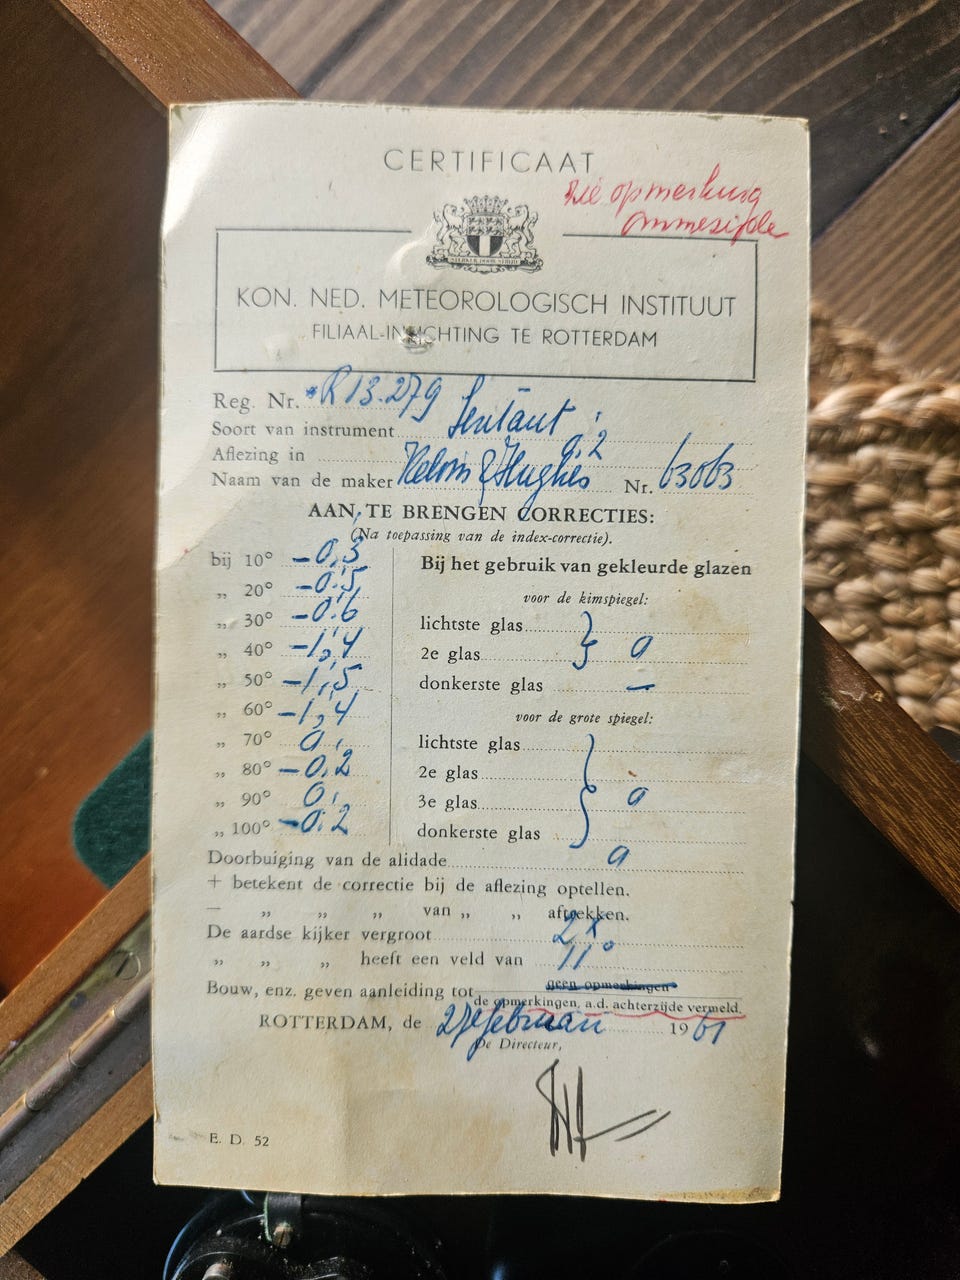 CERTIFICAAT
zie opmerking
ommezijde
KON. NED. METEOROLOGISCH INSTITUUT
FILIAAL-INRICHTING TE ROTTERDAM
Reg. Nr. R 13.279
Soort van instrument Sextant
Aflezing in 0,'2
Naam van de maker Kelvin & Hughes Nr. 63063
AAN TE BRENGEN CORRECTIES:
(Na toepassing van de index-correctie).
bij 10° -0,'3
„ 20° -0,'5
„ 30° -0,'6
„ 40° -1,'4
„ 50° -1,'5
„ 60° -1,'4
„ 70° 0,'
„ 80° -0,'2
„ 90° 0,'
„ 100° -0,'2
Bij het gebruik van gekleurde glazen
voor de kimspiegel:
lichtste glas
2e glas 0
donkerste glas —
voor de grote spiegel:
lichtste glas
2e glas
3e glas 0
donkerste glas
Doorbuiging van de alidade 0
+ betekent de correctie bij de aflezing optellen.
— „ „ „ van „ „ aftrekken.
De aardse kijker vergroot 2x
„ „ „ heeft een veld van 11°
Bouw, enz. geven aanleiding tot geen opmerkingen
de opmerkingen, a.d. achterzijde vermeld.
ROTTERDAM, de 27 februari 1961
De Directeur,
E. D. 52